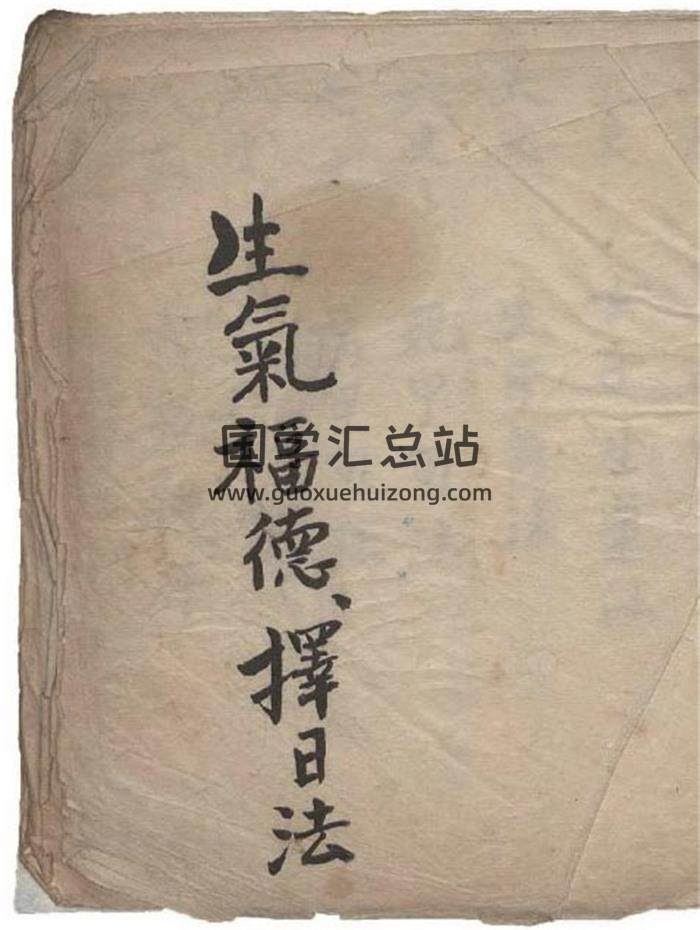 生氣福德、擇日法
国学汇总站
www.guoxuehuizong.com